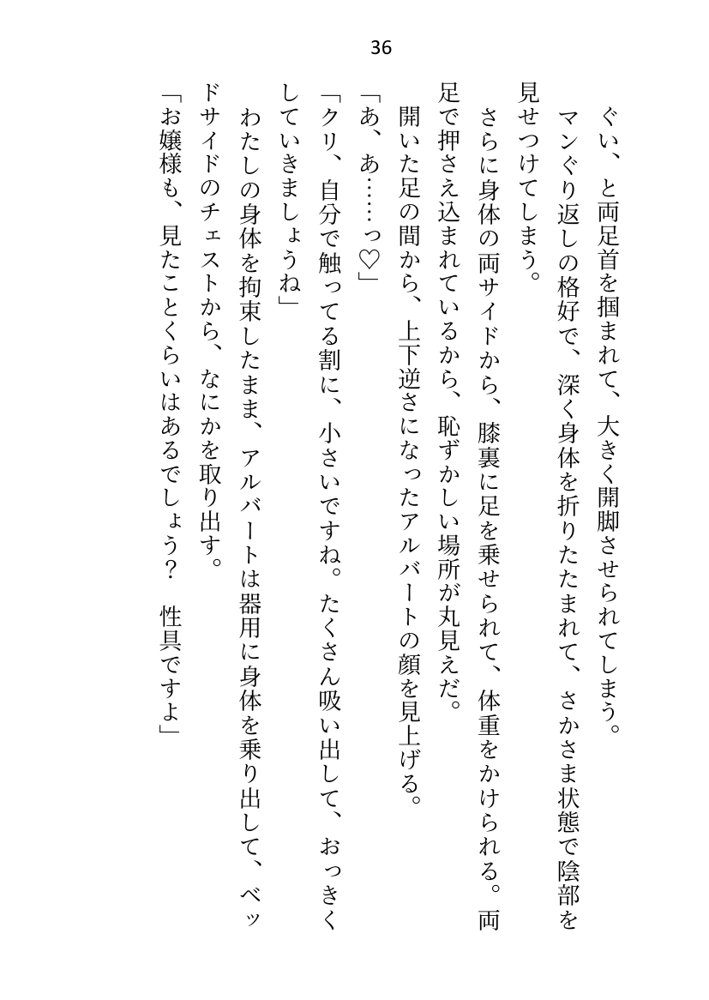 36
ぐい、と両足首を掴まれて、大きく開脚させられてしまう。
マンぐり返しの格好で、深く身体を折りたたまれて、さかさま状態で陰部を
見せつけてしまう。
さらに身体の両サイドから、膝裏に足を乗せられて、体重をかけられる。両
足で押さえ込まれているから、恥ずかしい場所が丸見えだ。
開いた足の間から、上下逆さになったアルバートの顔を見上げる。
「あ、あ……っ♡」
「クリ、自分で触ってる割に、小さいですね。たくさん吸い出して、おっきく
していきましょうね」
わたしの身体を拘束したまま、アルバートは器用に身体を乗り出して、ベッ
ドサイドのチェストから、なにかを取り出す。
「お嬢様も、見たことくらいはあるでしょう？　性具ですよ」